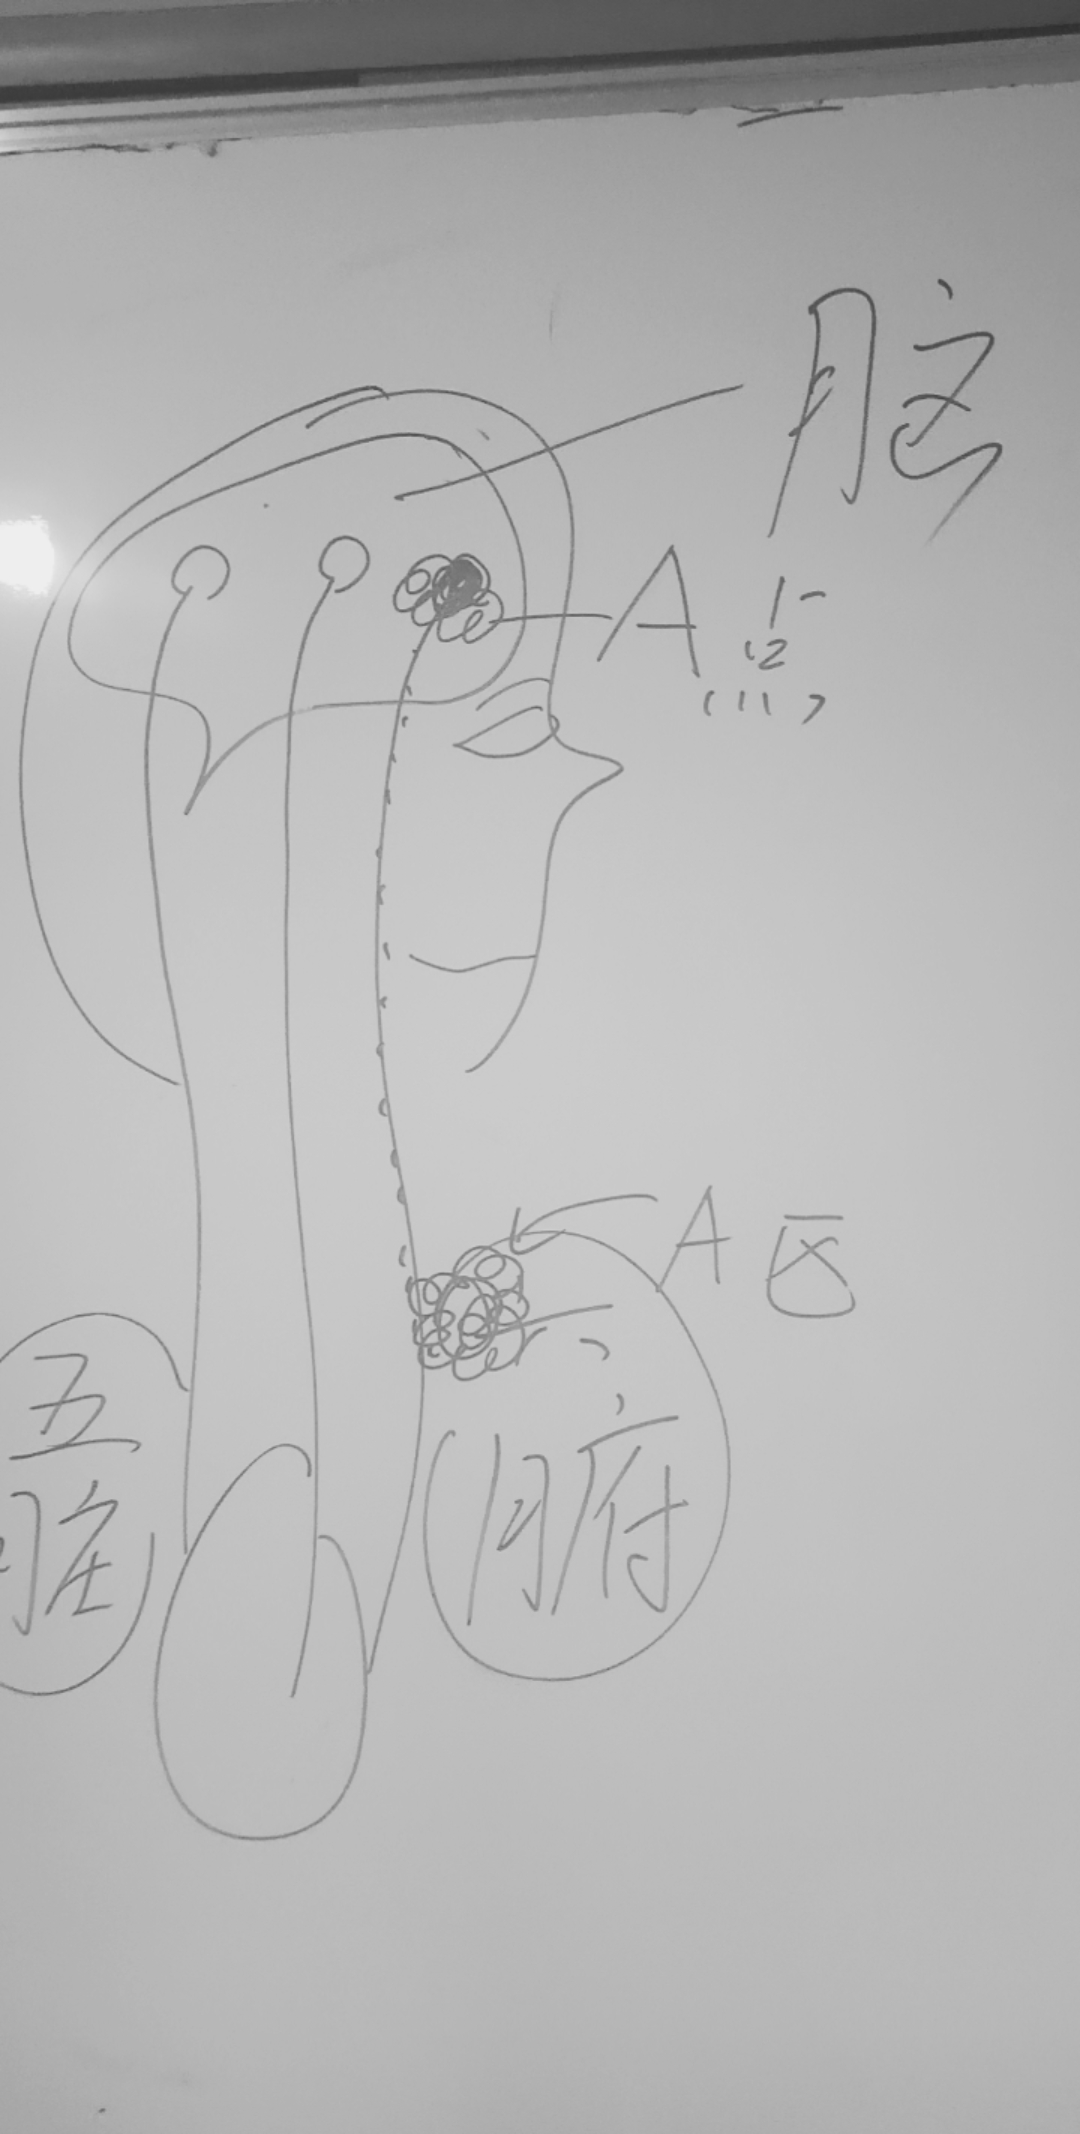 脑
A点
A区
五
脏
六
腑